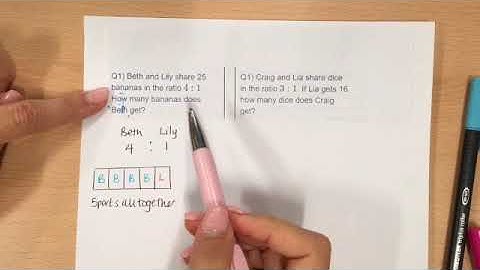 Q1) Beth and Lily share 25
bananas in the ratio 4 : 1
How many bananas does
Beth get?
Beth Lily
4 : 1
B B B B L
5 parts all together
Q1) Craig and Lia share dice
in the ratio 3 : 1. If Lia gets 16
how many dice does Craig
get?